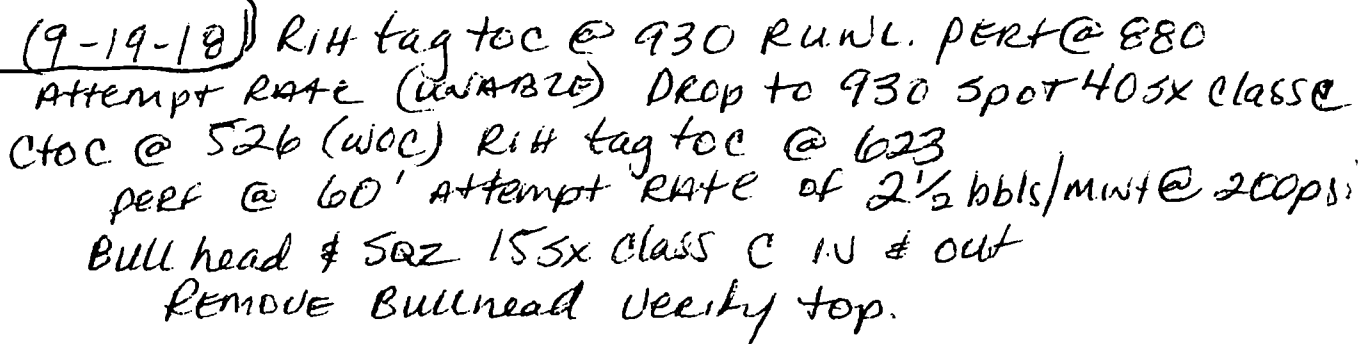 (9-19-18) RIH tag toc @ 930 RU.WL. PERF @ 880
Attempt RATE (UNABLE) DROP to 930 Spot 40sx Class C
CtoC @ 526 (WOC) RIH tag toc @ 623
PERF @ 60' Attempt RATE of 2 1/2 bbls/Mint @ 200psi
Bull head & SQZ 15sx Class C IN & out
REMOVE Bullhead Verify top.